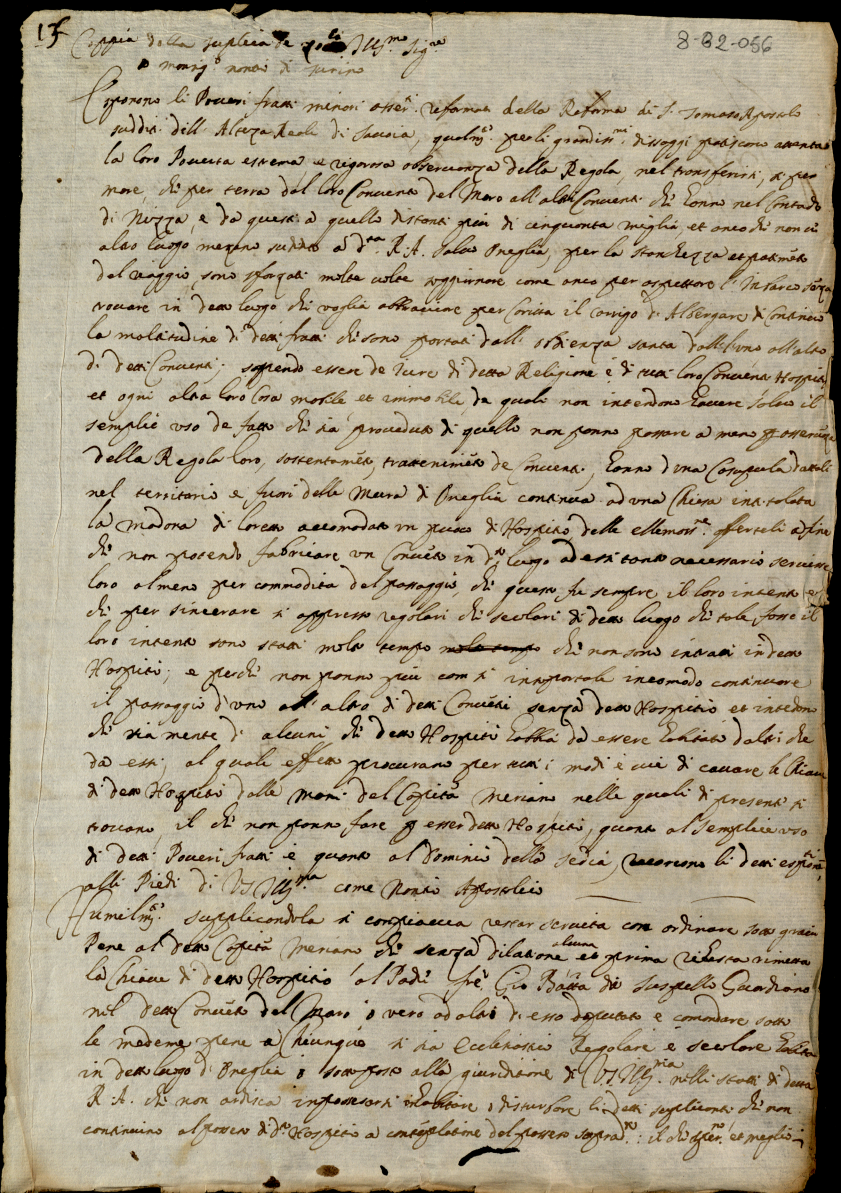 15
8-B2-056
Coppia della suplica de Ill.mo Sig.re
o monsig.r nontio di turino
Esponono li Poveri fratti minori osser.ti reformati della Reforma di S. Tomaso Apostolo
sudditi dell'Altezza Reale di Savoia, qualm.te per li grandiss.mi dissaggi patiscono attenta
la loro Poverta estrema e rigorosa observanza della Regola, nel transferirsi, si per
mare, chi per terra dal loro Convento del Maro all'altri Conventi che hanno nel Contado
di Nizza, e da questi a quello distanti piu di cinquanta miglia, et anco che non vi
altro luogo mezano suddito a d.ta R. A. salvo Oneglia, per la stanchezza et patim.to
del viaggio, sono sforzati molte volte soggiornare come anco per aspettare l'imbarco senza
trovare in detto luogo chi voglia abbracciare per Carita il carrigo di Albergare di continuo
la moltitudine di detti fratti che sono portati dall'obedienza santa dall'uno all'altro
di detti Conventi; sapendo essere de Jure di detta Religione è di tutti loro Conventi Hospitij
et ogni altra loro Cosa mobile et immobile da quali non intendono havere salvo il
semplice uso de fatto che sia proceduto di quello non ponno passare a meno p osservanza
della Regola loro, sostentam.to, trattenim.to de Conventi, hanno d'una Casupula dattali
nel territorio e fuori delle Mura di Oneglia continua ad una Chiesa intitolata
la madona di loretto accomodato un puoco di Hospitio delle ellemosine offerteli a fine
che non potendo fabricare un Convento in d.to luogo ad essi tanto necessario servisse
loro almeno per commodita del passaggio, che questo fu sempre il loro intento et
che per sincerare si appresso regolari che secolari di detto luogo che tale fosse il
loro intento sono stati molto tempo che non sono intrati in detto
Hospitio; e perche non ponno piu con si inportabile incomodo continuare
il passaggio d'uno all'altro di detti Conventi senza detto Hospitio et intedono
che sia mente di alcuni che detto Hospitio habbia da essere habitato d'altri che
da essi, al quale effetto procurano per tutti i modi e vie di cavare le Chiavi
di detto Hospitio dalle mani del Capita Meriano nelle quali di presente si
trovano, il che non ponno fare p esser detto Hospitio, quanto al semplice uso
di detti Poveri fratti è quanto al Dominio della sedia, raccorono li detti esponenti
alli Piedi di V.S. Ill.ma come Nontio Apostolico
Humilm.te supplicondola si compiaccia restar servita con ordinare sotto gravi
Pene al detto Capita Meriano che senza dilatione alcuna et prima richiesta rimetta
la Chiave di detto Hospitio al Padre fre Gio Batta di Suspello Guardiano
nel detto Convento del Maro, o vero ad altri di esso deputati e comandare sotto
le medeme pene a chiunque si sia Eclesiastico Regolare e secolare habita
in detto luogo d'Oneglia o sottoposto alla giuriditione di V.S. Ill.ma nelli stati di detta
R. A. che non ardisca inpossessarsi o habitare o disturbare li detti suplicanti che non
continuino al possesso di d.to Hospitio a contemplatione del possesso sopra.to: il che sper.no et meglio